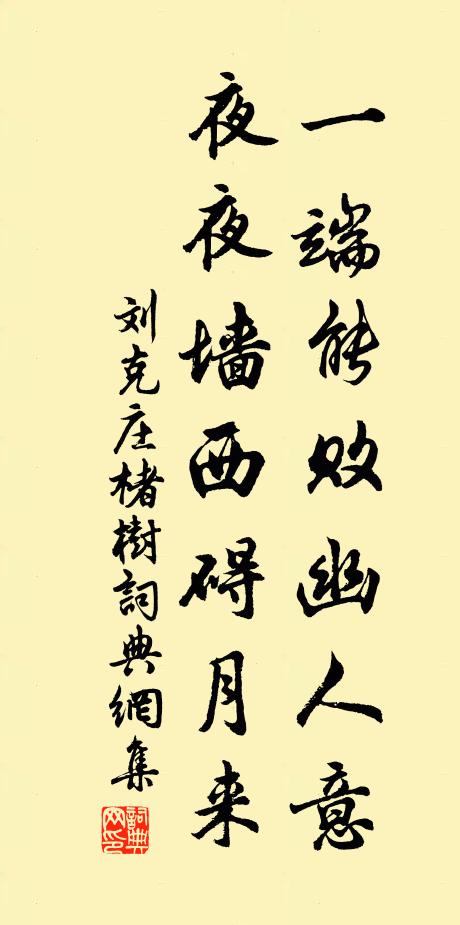 一端能败幽人意
夜夜墙西碍月来
刘克庄楮樹詞典網集
詞典网印